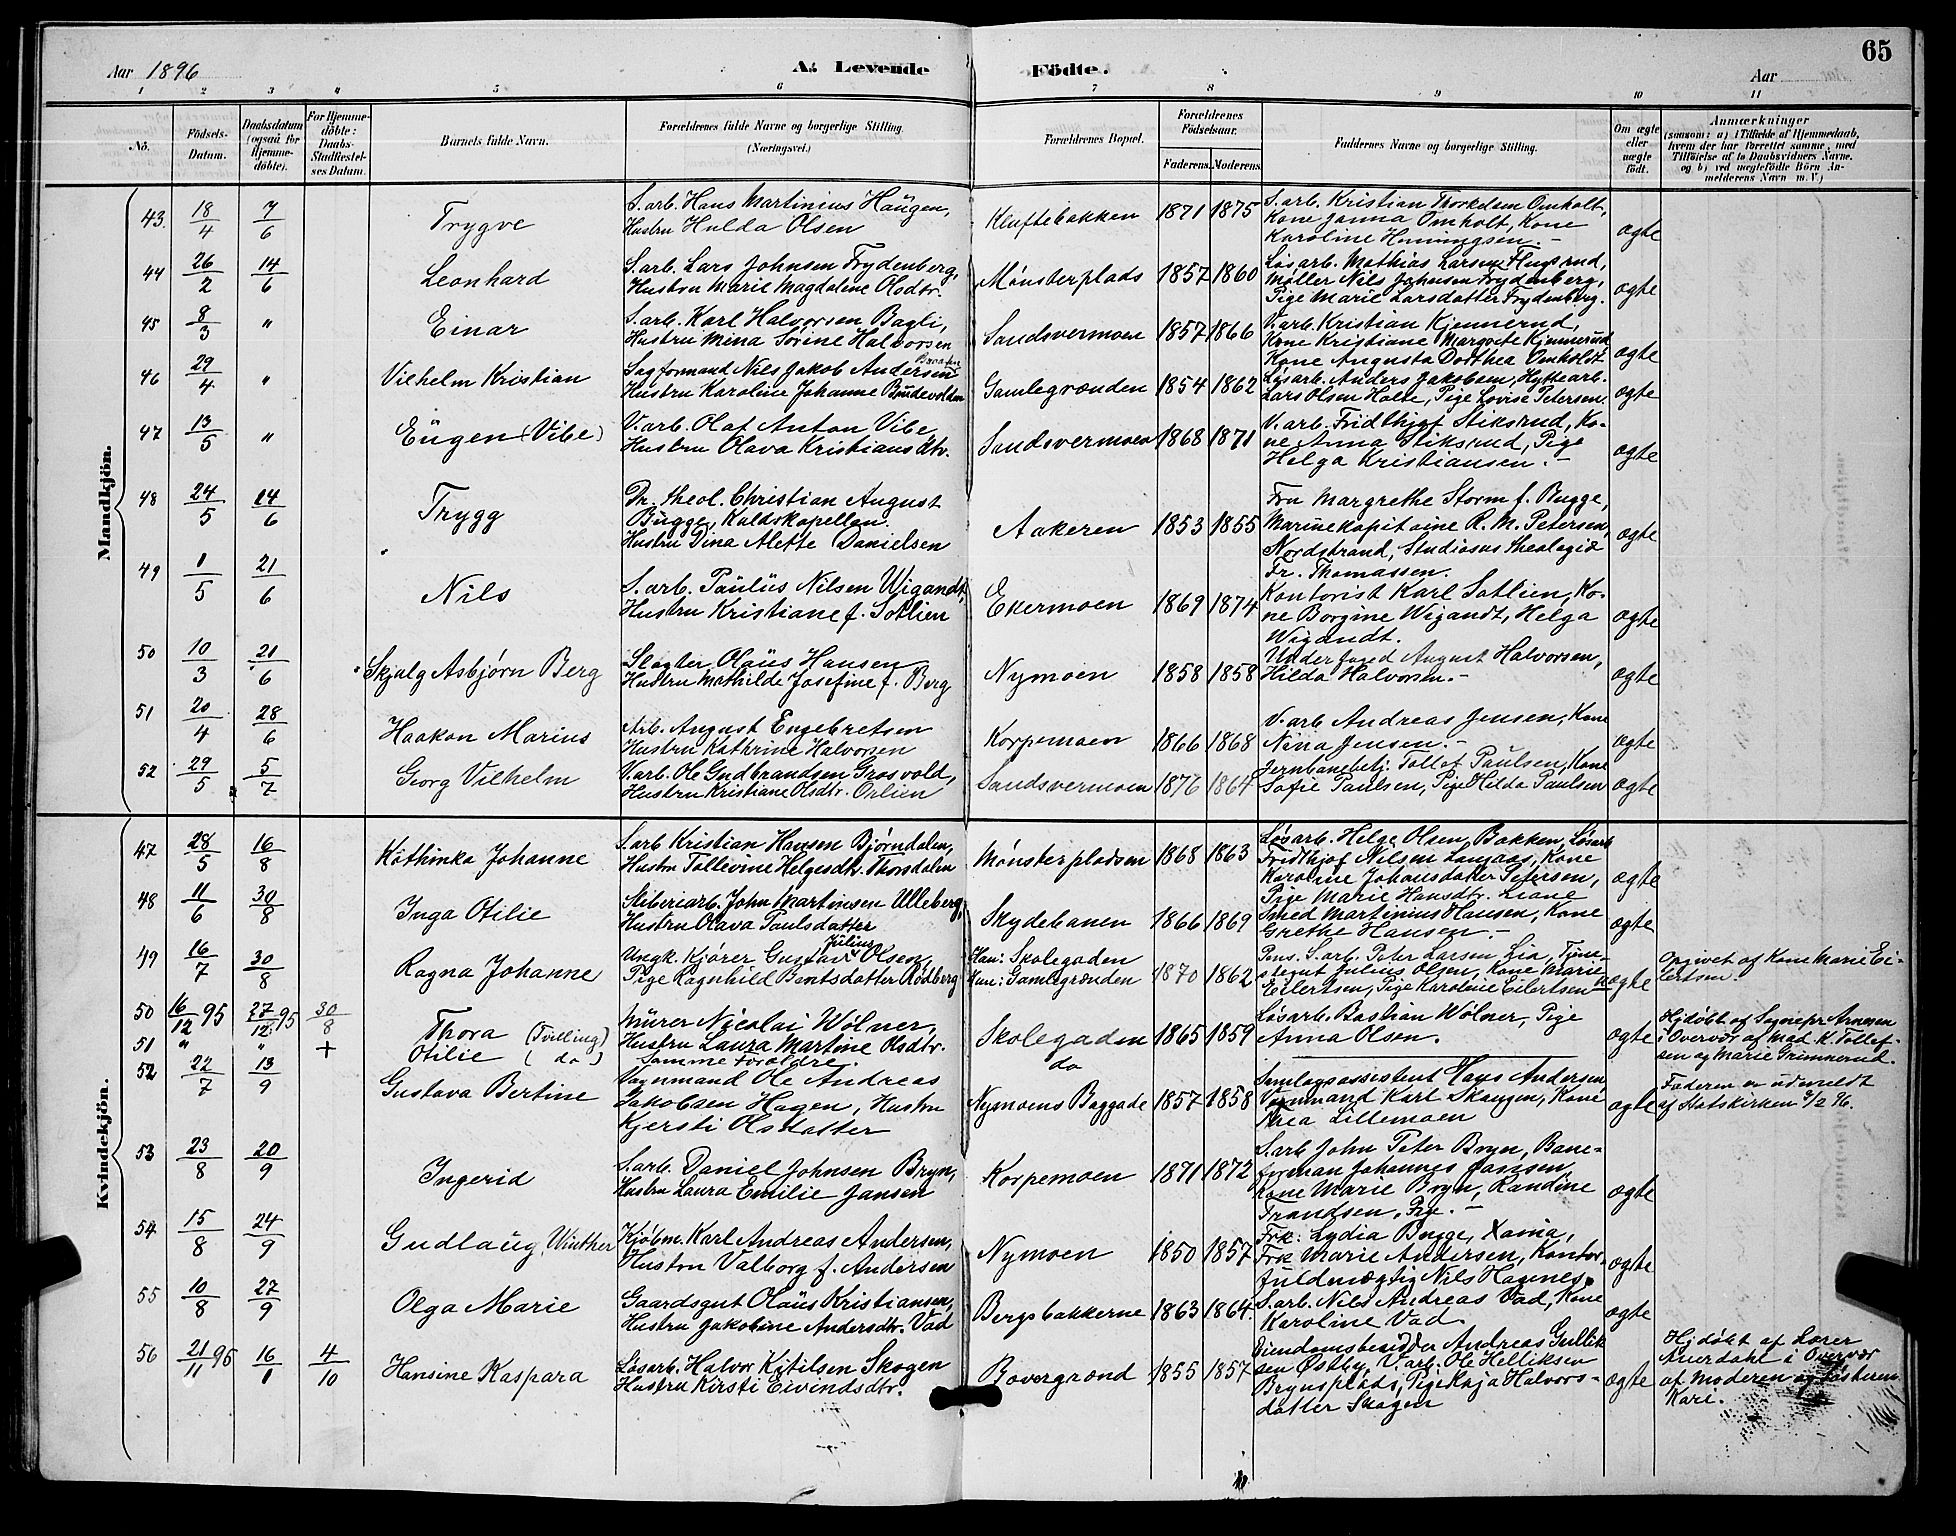 65
Aar 1896
A. Levende Födte.
Aar
1 2 3 4 5 6 7 8 9 10 11
No.
Födsels-Datum.
Daabsdatum (ogsaa for Hjemme-döbte).
For Hjemme-döbte: Daabs-Stadfæstel-ses Datum.
Barnets fulde Navn.
Forældrenes fulde Navne og borgerlige Stilling.
(Næringsvei.)
Forældrenes Bopæl.
Forældrenes Födselsaar.
Faderens. Moderens.
Faddernes Navne og borgerlige Stilling.
Om ægte eller uægte født.
Anmærkninger
(saasom: a) i Tilfælde af Hjemmedaab,
hvem der har forrettet samme, med
Tilföielse af to Daabsvidners Navne.
og b) ved uægtefödte Börn An-
melderens Navn m. V.)
Mandkjön.
43. 18/4 7/6
Trygve
S. arb. Hans Martinius Haugen,
Hustru Hulda Olsen
Kluftebakken 1871 1875
S. arb. Kristian Thorkdem Omholt,
Kone Janna Omholt, Kone
Karoline Henningsen.-
ægte
44 26/2 14/6
Leonhard
S. arb. Lars Johnsen Frydenberg,
Hustru Marie Magdaline Olsdtr.
Mønsterplads 1857 1860
Løsarb. Mathias Larsen
Møller Nils Johnsen Frydenberg,
Pige Marie Larsdatter Frydenberg.
ægte
45 8/3 "
Einar
S. arb. Karl Halvorsen Bagli,
Hustru Mina Sørine Halvorsen
Sandsvermoen 1857 1866
V. arb. Kristian Kjennerud,
Kone Kristiane Margrete Kjennerud
Kone Augusta Dorthea Omholt
ægte
46 29/4 "
Vilhelm Kristian
Sagformand Nils Jakob Andersen
Hustru Karoline Johanne Bundevolden
Gamlegrænden 1854 1862
Løsarb. Anders Jakobsen, Hyttearb.
Lars Olsen Holte, Pige Lovise Petersen.
ægte
47 13/5 "
Eugen (Vibe)
V. arb. Olaf Anton Vibe
Hustru Olava Kristiansdtr.
Sandsvermoen 1868 1871
V. arb. Fridthjof Stiksrud, Ko-
ne Anna Stiksrud, Pige
Helga Kristiansen.-
ægte
48 24/5 14/6
Trygg
Dr. theol. Christian August
Bugge, Kaldskapellan.
Hustru Dina Alette Danielsen
Aakeren 1853 1855
Fru Margrethe Storm f. Bugge,
Marinekapitaine R. M. Petersen,
Nordstrand, Studiosus theologiæ
Fr. Thomassen.
ægte
49 1/5 21/6
Nils
S. arb. Paulus Nilsen Wigandt,
Hustru Kristiane f. Sotlien
Ekermoen 1869 1874
Kontorist Karl Sotlien, Ko-
ne Borgine Wigandt, Helga
Wigandt.
ægte
50 10/3 21/6
Skjalg Asbjørn Berg
Slagter Olaus Hansen
Hustru Mathilde Josefine f. Berg
Nymoen 1858 1858
Underfoged August Halvorsen,
Hilda Halvorsen.-
ægte
51 20/4 28/6
Haakon Marius
Arb. August Engebretsen
Hustru Kathrine Halvorsen
Korpemoen 1866 1868
V. arb Andreas Jensen, Kone
Nina Jensen.-
ægte
52 29/5 5/7
Georg Vilhelm
V. arb. Ole Gudbrandsen Grosvold,
Hustru Kristiane Olsdtr. Orlien
Sandsvermoen 1876 1864
Jernbanebetj. Tollef Paulsen, Kone
Sofie Paulsen, Pige Hilda Paulsen
ægte
Kvindekjön.
47 28/5 16/8
Kathinka Johanne
S. arb Kristian Hansen Bjørndalen,
Hustru Tollevine Helgesdtr. Thorsdalen
Mønsterpladsen 1868 1863
Løsarb. Helge Olsen Bakken, Løsarb
Fridthjof Nilsen Langaas, Kone
Karoline Johansdatter Petersen,
Pige Marie Hansdtr. Liane
ægte
48 11/6 30/8
Inga Otilie
Stiberiarb. John Martinsen Ulleberg,
Hustru Olava Paulsdatter
Skydebanen 1866 1869
Smed Martinius Hansen, Kone
Grethe Hansen.-
ægte
49 16/7 30/8
Ragna Johanne
Ungk. Kjører Gustav Julius Olsen,
Pige Ragnhild Berntsdatter Rødberg
Han: Skolegaden
Hun: Gamlegrænden 1870 1862
Pens. S. arb. Peter Larsen Lia, Tjene-
stegut Julius Olsen, Kone Marie
Eilertsen, Pige Karoline Eilertsen
uægte
Opgivet af Kone Marie Ei-
lertsen.
50 16/12 95 27/12 95 30/8
Thora (Tvilling)
Murer Nicolai Wølner,
Hustru Laura Martine Olsdtr.
Skolegaden 1865 1859
Løsarb. Bastian Wølner, Pige
Anna Olsen.
ægte
Hjdøbt af Sognepr Arnesen
i Overvær af Mad. K. Tollef-
sen og Marie Grimnerud.
51 " " +
Otilie (do)
Samme Forældre.
do
52 22/7 13/9
Gustava Bertine
Vognmand Ole Andreas
Jakobsen Hagen, Hustru
Kjersti Olsdatter
Nymoens Baggade 1857 1858
Samlagsassistent Hans Andersen,
Vognmand Karl Skaugen, Kone
Thea Lillemoen
ægte
Faderen er udmeldt
af Statskirken 9/2 96.
53 23/8 20/9
Ingerid
S. arb. Daniel Johnsen Bryn,
Hustru Laura Emilie Jansen
Korpemoen 1871 1872
S. arb John Peter Bryn, Bane-
forman Johannes Jansen,
Kone Marie Bryn, Randine
Frandsen, Pige.-
ægte
54 15/8 24/9
Gudlaug Winther
Kjøbm. Karl Andreas Andersen,
Hustru Valborg f. Andersen
Nymoen 1850 1857
Frk. Lydia Bugge, Xania,
Frk Marie Andersen, Kontor-
fuldmægtig Nils Hagnes.
ægte
55 10/8 27/9
Olga Marie
Gaardsgut Olaus Kristiansen,
Hustru Jakobine Andersdtr. Vad
Bergsbakkerne 1863 1864.
S. arb. Nils Andreas Vad, Kone
Karoline Vad.
ægte
56 21/11 95 16/1 4/10
Hansine Kaspara
Løsarb. Halvor Kjitilsen Skogen
Hustru Kirsti Eivindsdtr.
Bovergrænd 1855 1857
Eiendomsbesidder Andreas Gullik
sen Østby, V. arb. Ole Helliksen
Brynsplads, Pige Kaja Halvors-
datter Skogen
ægte
Hjdøbt af Lærer
Auerdahl i Overvær
af Moderen og Søsteren
Kari.